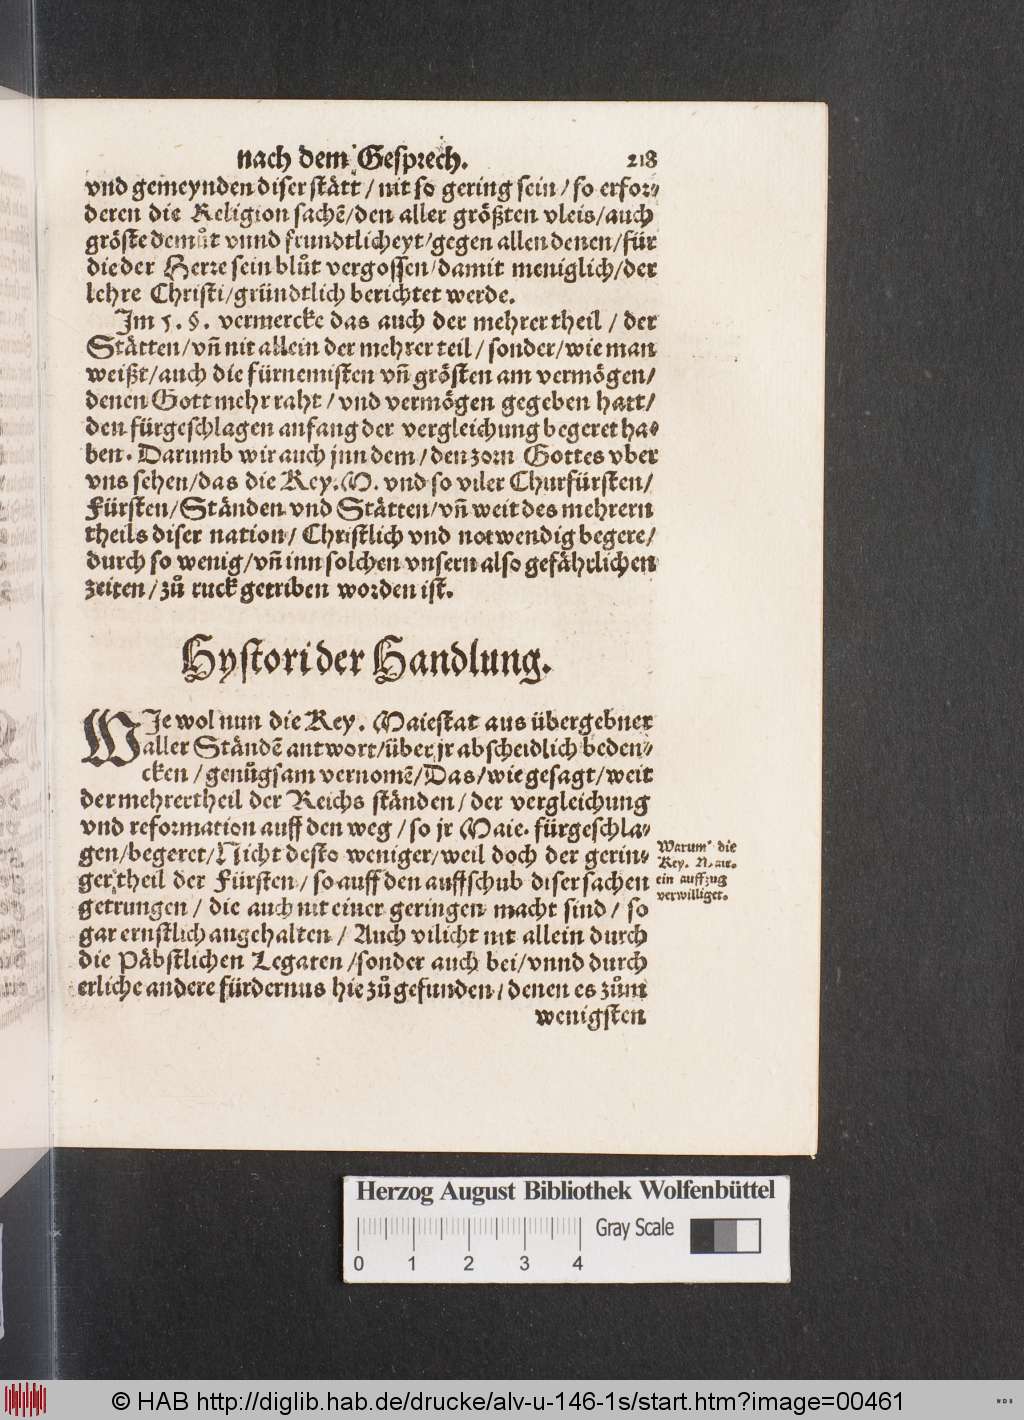 nach dem Gesprech. 218
vnd gemeynden diser stått / nit so gering sein / so erfor⸗
deren die Religion sachẽ/den aller größten vleis/auch
gröste demůt vnnd frundtlicheyt/gegen allen denen/für
die der Herre sein blůt vergossen/damit meniglich/der
lehre Christi/gründtlich berichtet werde.
Im 5. §. vermercke das auch der mehrertheil / der
Stätten/vñ nit allein der mehrer teil / sonder/wie man
weißt/auch die fürnemisten vñ grösten am vermögen/
denen Gott mehr raht / vnd vermögen gegeben hatt/
den fürgeschlagen anfang der vergleichung begeret ha⸗
ben. Darumb wir auch jnn dem / den zorn Gottes vber
vns sehen/das die Key. M. vnd so viler Churfürsten/
Fürsten/Ständen vnd Stätten/vñ weit des mehrern
theils diser nation/ Christlich vnd notwendig begere/
durch so wenig/vñ inn solchen vnsern also gefährlichen
zeiten/zů ruck getriben worden ist.
Hystori der Handlung.
WJe wol nun die Key. Maiestat aus übergebner
aller Ständẽ antwort/über jr abscheidlich beden⸗
cken / genůgsam vernomẽ/Das/wie gesagt/weit
der mehrertheil der Reichs ständen/ der vergleichung
vnd reformation auff den weg / so jr Maie. fürgeschla⸗
gen/begeret/Nicht desto weniger/weil doch der gerin⸗
ger theil der Fürsten / so auff den auffschub diser sachen
getrungen / die auch nit einer geringen macht sind / so
gar ernstlich angehalten / Auch vilicht nit allein durch
die Päbstlichen Legaten /sonder auch bei/vnnd durch
erliche andere fürdernus hie zů gefunden/denen es zům
wenigsten
Warum die
Key. Maie.
ein auffzug
verwilliget.
Herzog August Bibliothek Wolfenbüttel
Gray Scale
0 1 2 3 4
© HAB http://diglib.hab.de/drucke/alv-u-146-1s/start.htm?image=00461